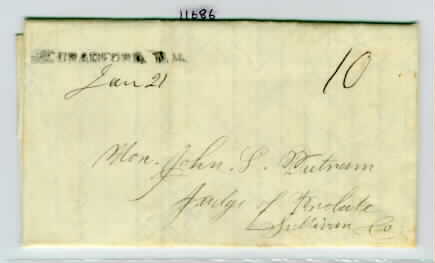 11686
BRADFORD, N.H.
Jan 21
10
Hon. John S. Putnam
Judge of Probate
Sullivan Co